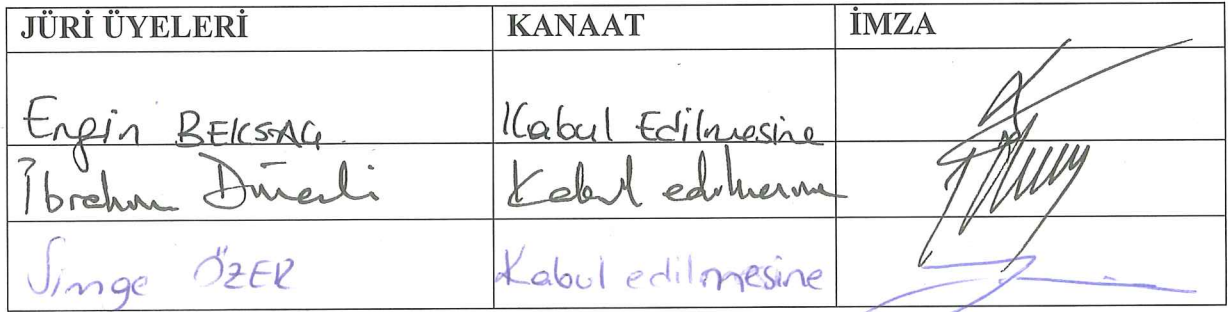 JÜRİ ÜYELERİ KANAAT İMZA
Engin BEKSAÇ Kabul Edilmesine
İbrahim Kabul edilmesine
Simge ÖZER Kabul edilmesine